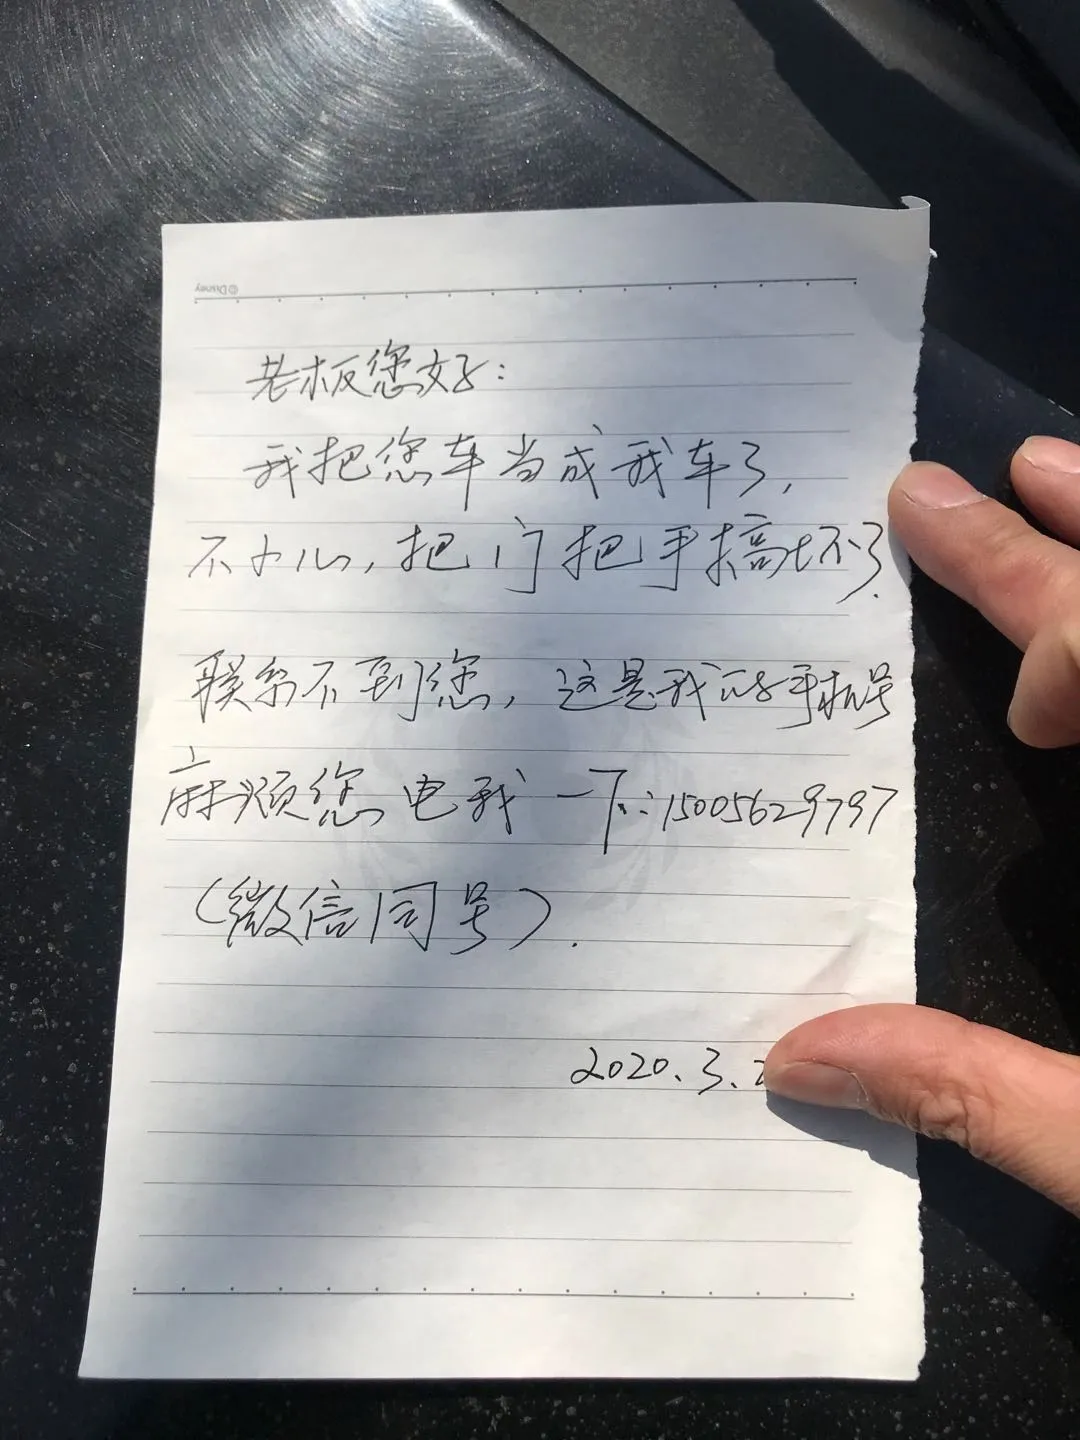 ©Disney
老板您好:
我把您车当成我车了,
不小心,把门把手搞坏了.
联系不到您,这是我的手机号
麻烦您电我一下:15005629797
(微信同号).
2020.3.2